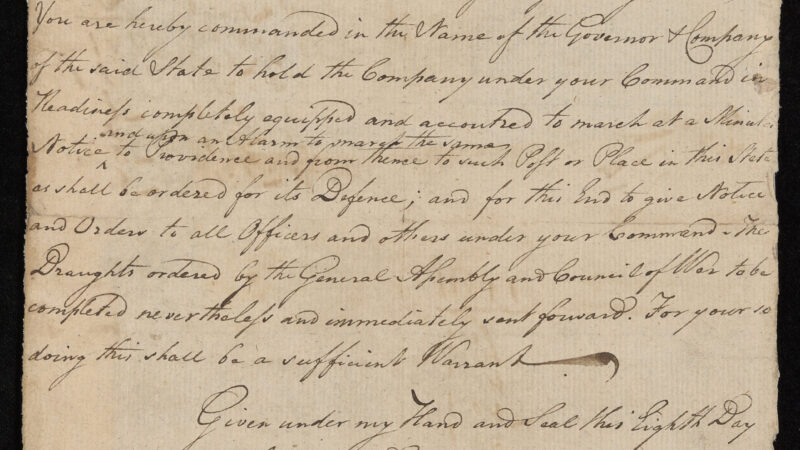 You are hereby commanded in the Name of the Governor & Company
of the said State to hold the Company under your Command in
Readiness completely equipped and accoutred to march at a Minute's
and upon an Alarm to march the same
Notice ^ to Providence and from thence to such Post or Place in this State
as shall be ordered for its Defence; and for this End to give Notice
and Orders to all Officers and others under your Command – The
Draughts ordered by the General Assembly and Council of War to be
completed nevertheless and immediately sent forward. For your so
doing this shall be a sufficient Warrant
Given under my Hand and Seal this Eighth Day